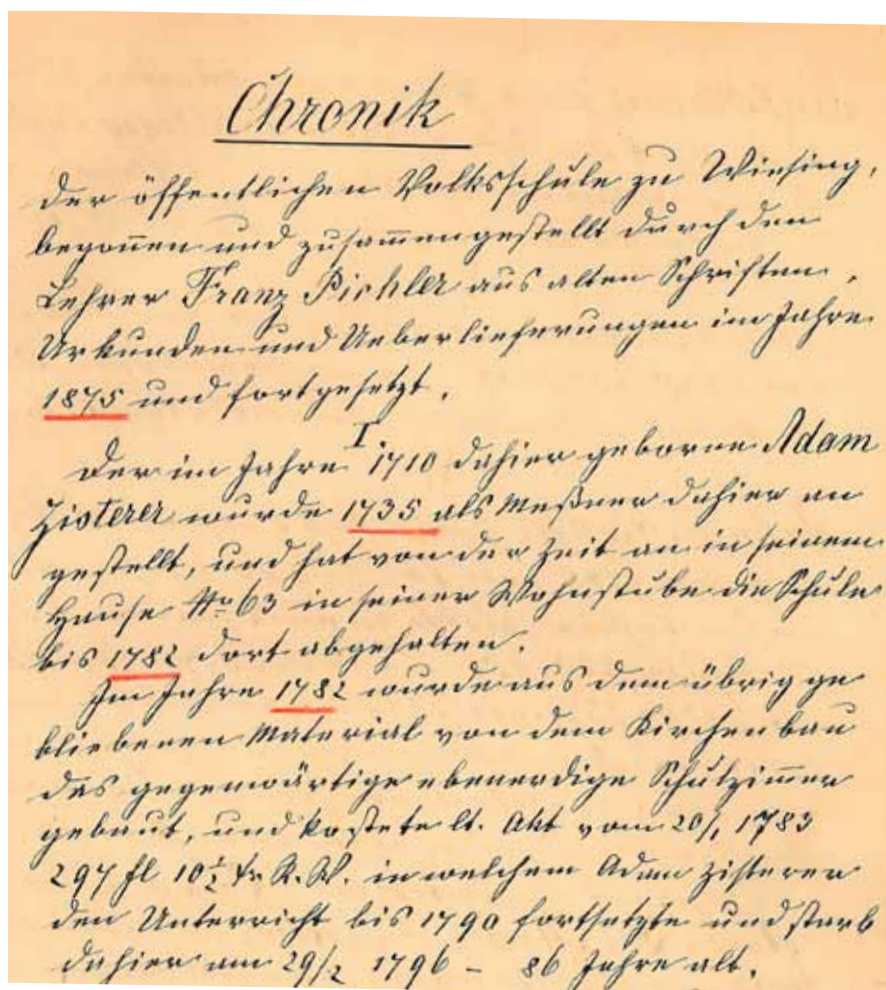 Chronik
der öffentlichen Volksschule zu Wiesing,
begon̄en und zusam̄engestellt durch den
Lehrer Franz Pichler aus alten Schriften,
Urkunden und Ueberlieferungen im Jahre
1875 und fortgesetzt.
I.
Der im Jahre 1710 dahier geborne Adam
Zisterer wurde 1735 als Meßner dahier an
gestellt, und hat von der Zeit an in seinem
Hause No 63 in seiner Wohnstube die Schule
bis 1782 dort abgehalten.
Im Jahre 1782 wurde aus dem übrig ge
bliebenen Material von dem Kirchenbau
das gegenwärtige ebenerdige Schulzim̄er
gebaut, und kostete lt. Akt vom 20/1 1783
297 fl 10 1/2 kr R.W. in welchem Adam Zisterer
den Unterricht bis 1790 fortsetzte und starb
dahier am 29/2 1796 – 86 Jahre alt.